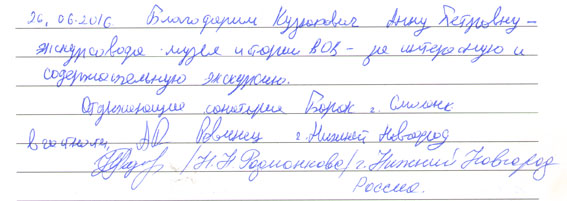 26.06.2016. Благодарим Кузюкович Анну Петровну –
экскурсовода музея истории ВОВ – за интересную и
содержательную экскурсию.
Отдыхающие санатория Борок г. Смолевичи
в частности, Ровинец г. Нижний Новгород
/Н.Н Родионова/ г. Нижний Новгород
Россия.